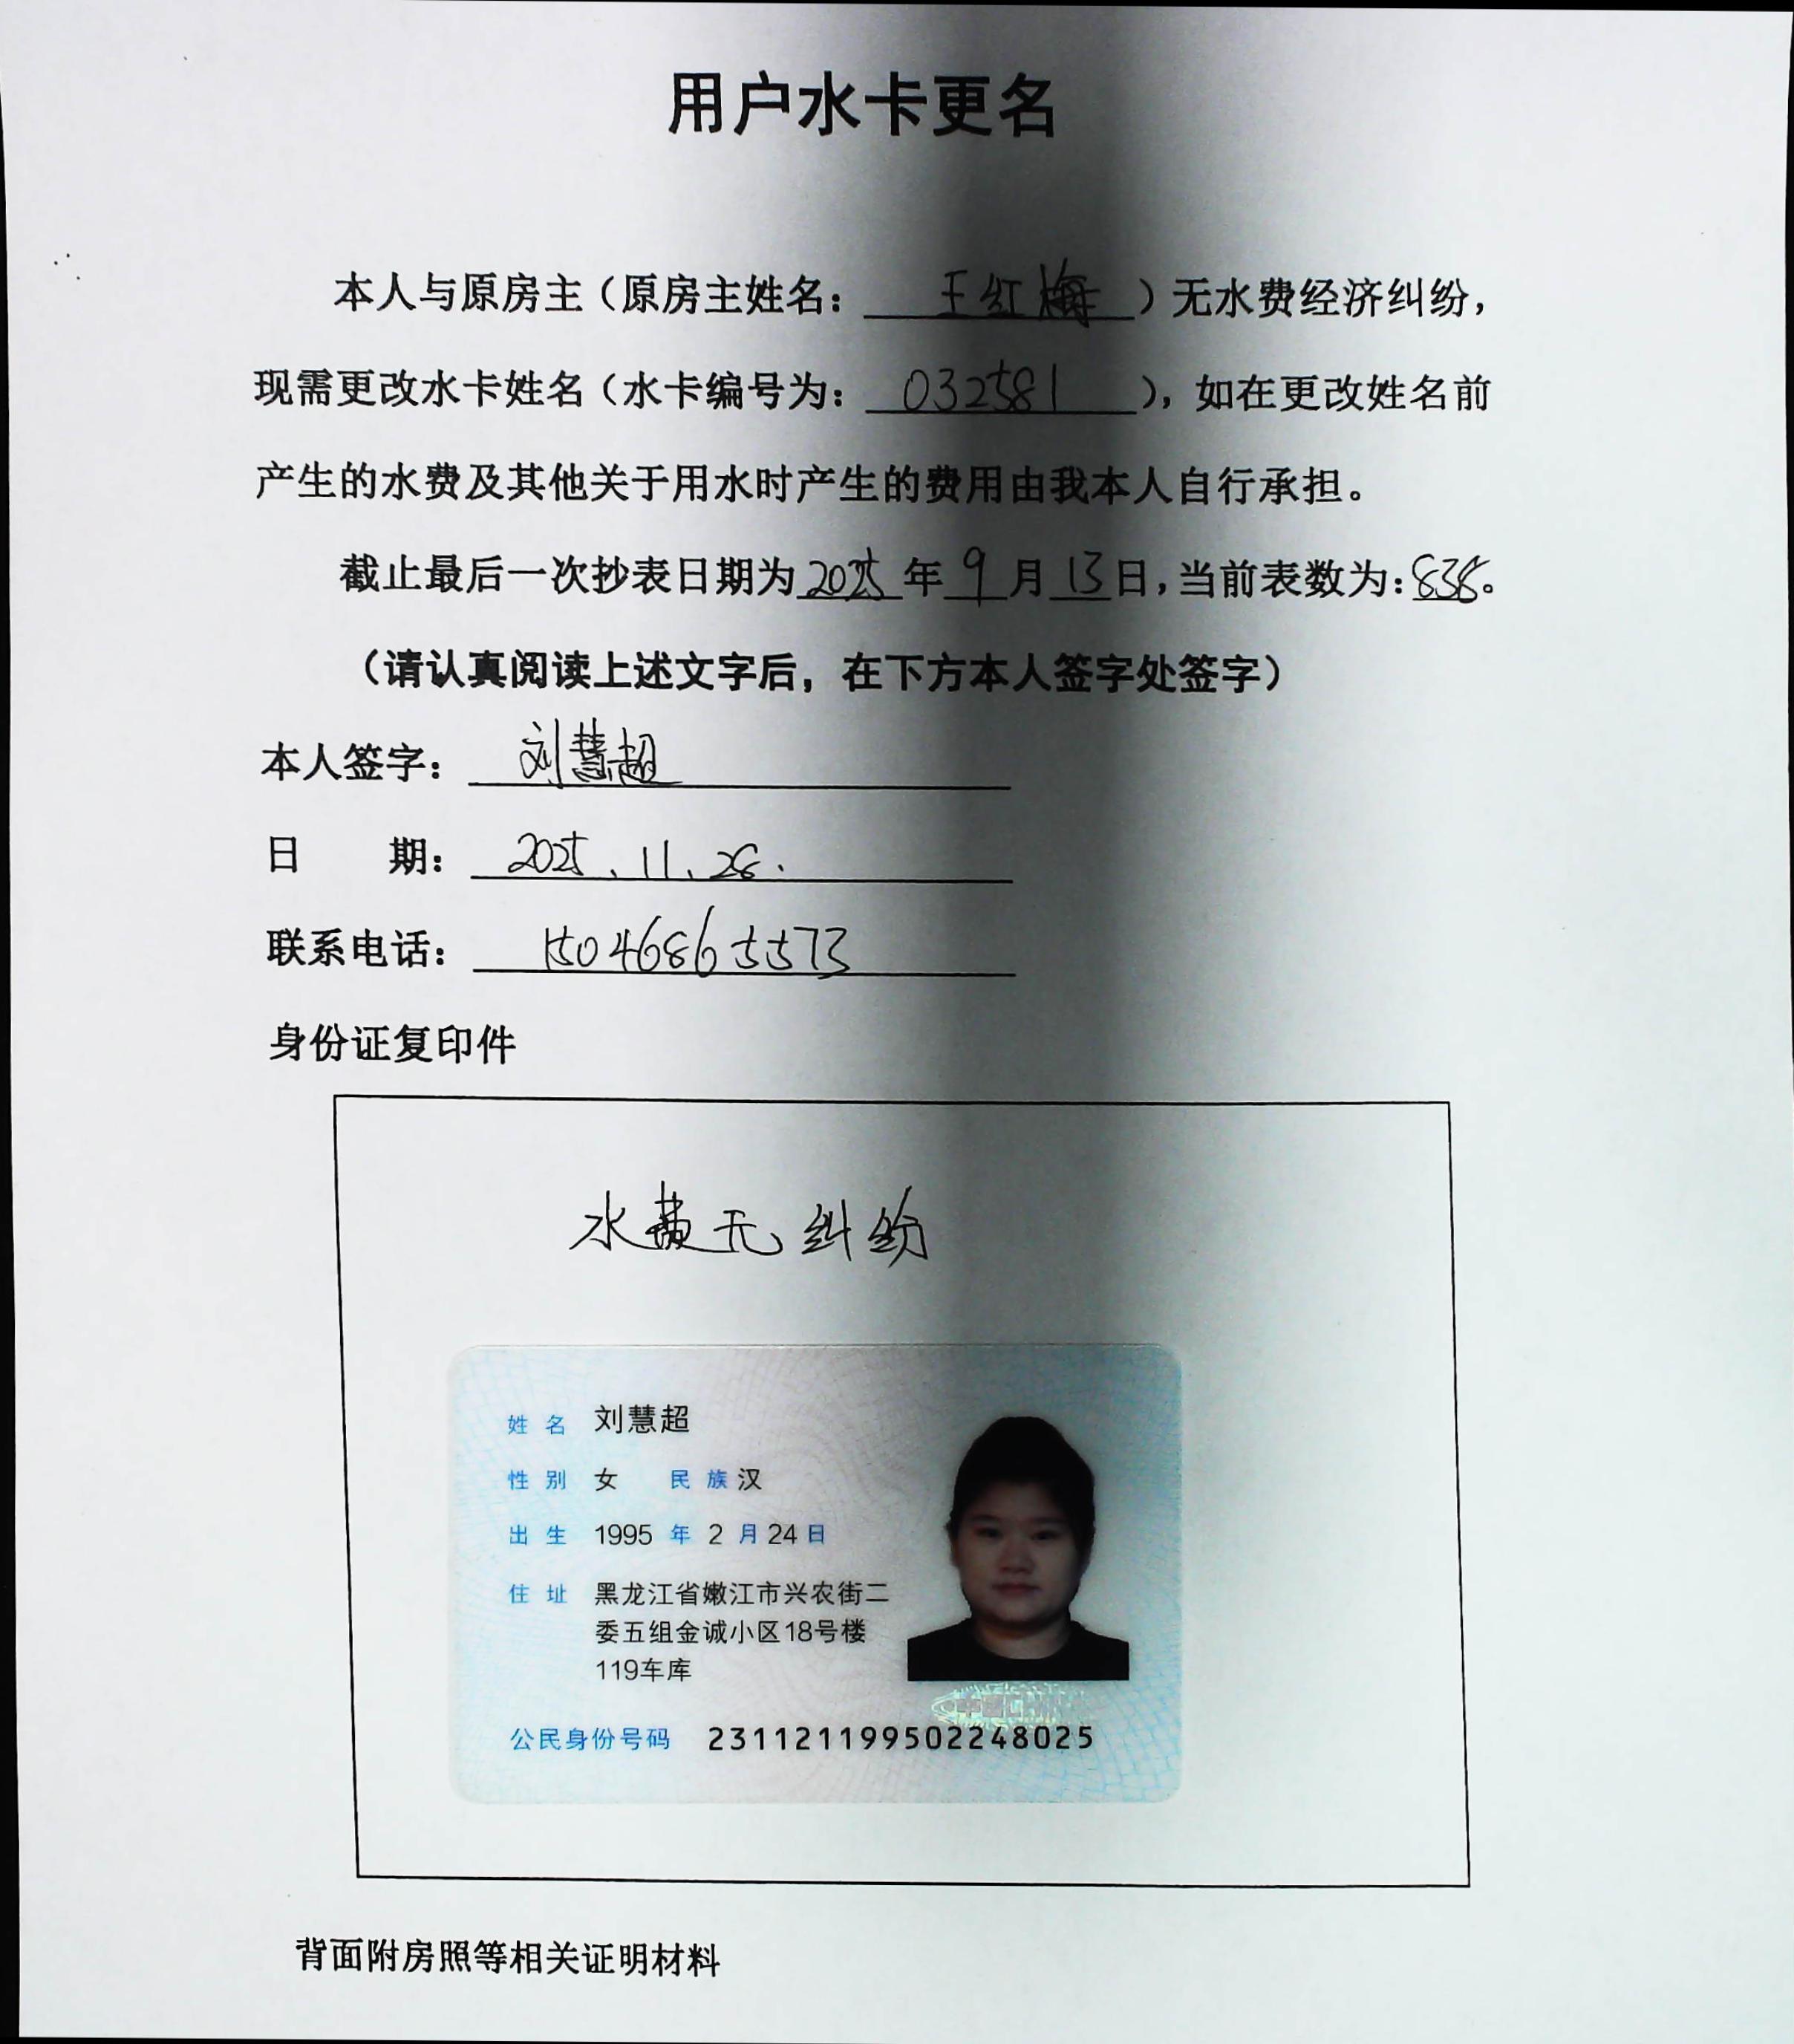 用户水卡更名
本人与原房主（原房主姓名：王红梅）无水费经济纠纷，
现需更改水卡姓名（水卡编号为：032581），如在更改姓名前
产生的水费及其他关于用水时产生的费用由我本人自行承担。
截止最后一次抄表日期为2025年9月13日，当前表数为：838。
（请认真阅读上述文字后，在下方本人签字处签字）
本人签字：刘慧超
日 期：2025.11.28.
联系电话：15046865573
身份证复印件
水费无纠纷
姓名 刘慧超
性别 女 民族 汉
出生 1995年2月24日
住址 黑龙江省嫩江市兴农街二
委五组金诚小区18号楼
119车库
公民身份号码 231121199502248025
背面附房照等相关证明材料